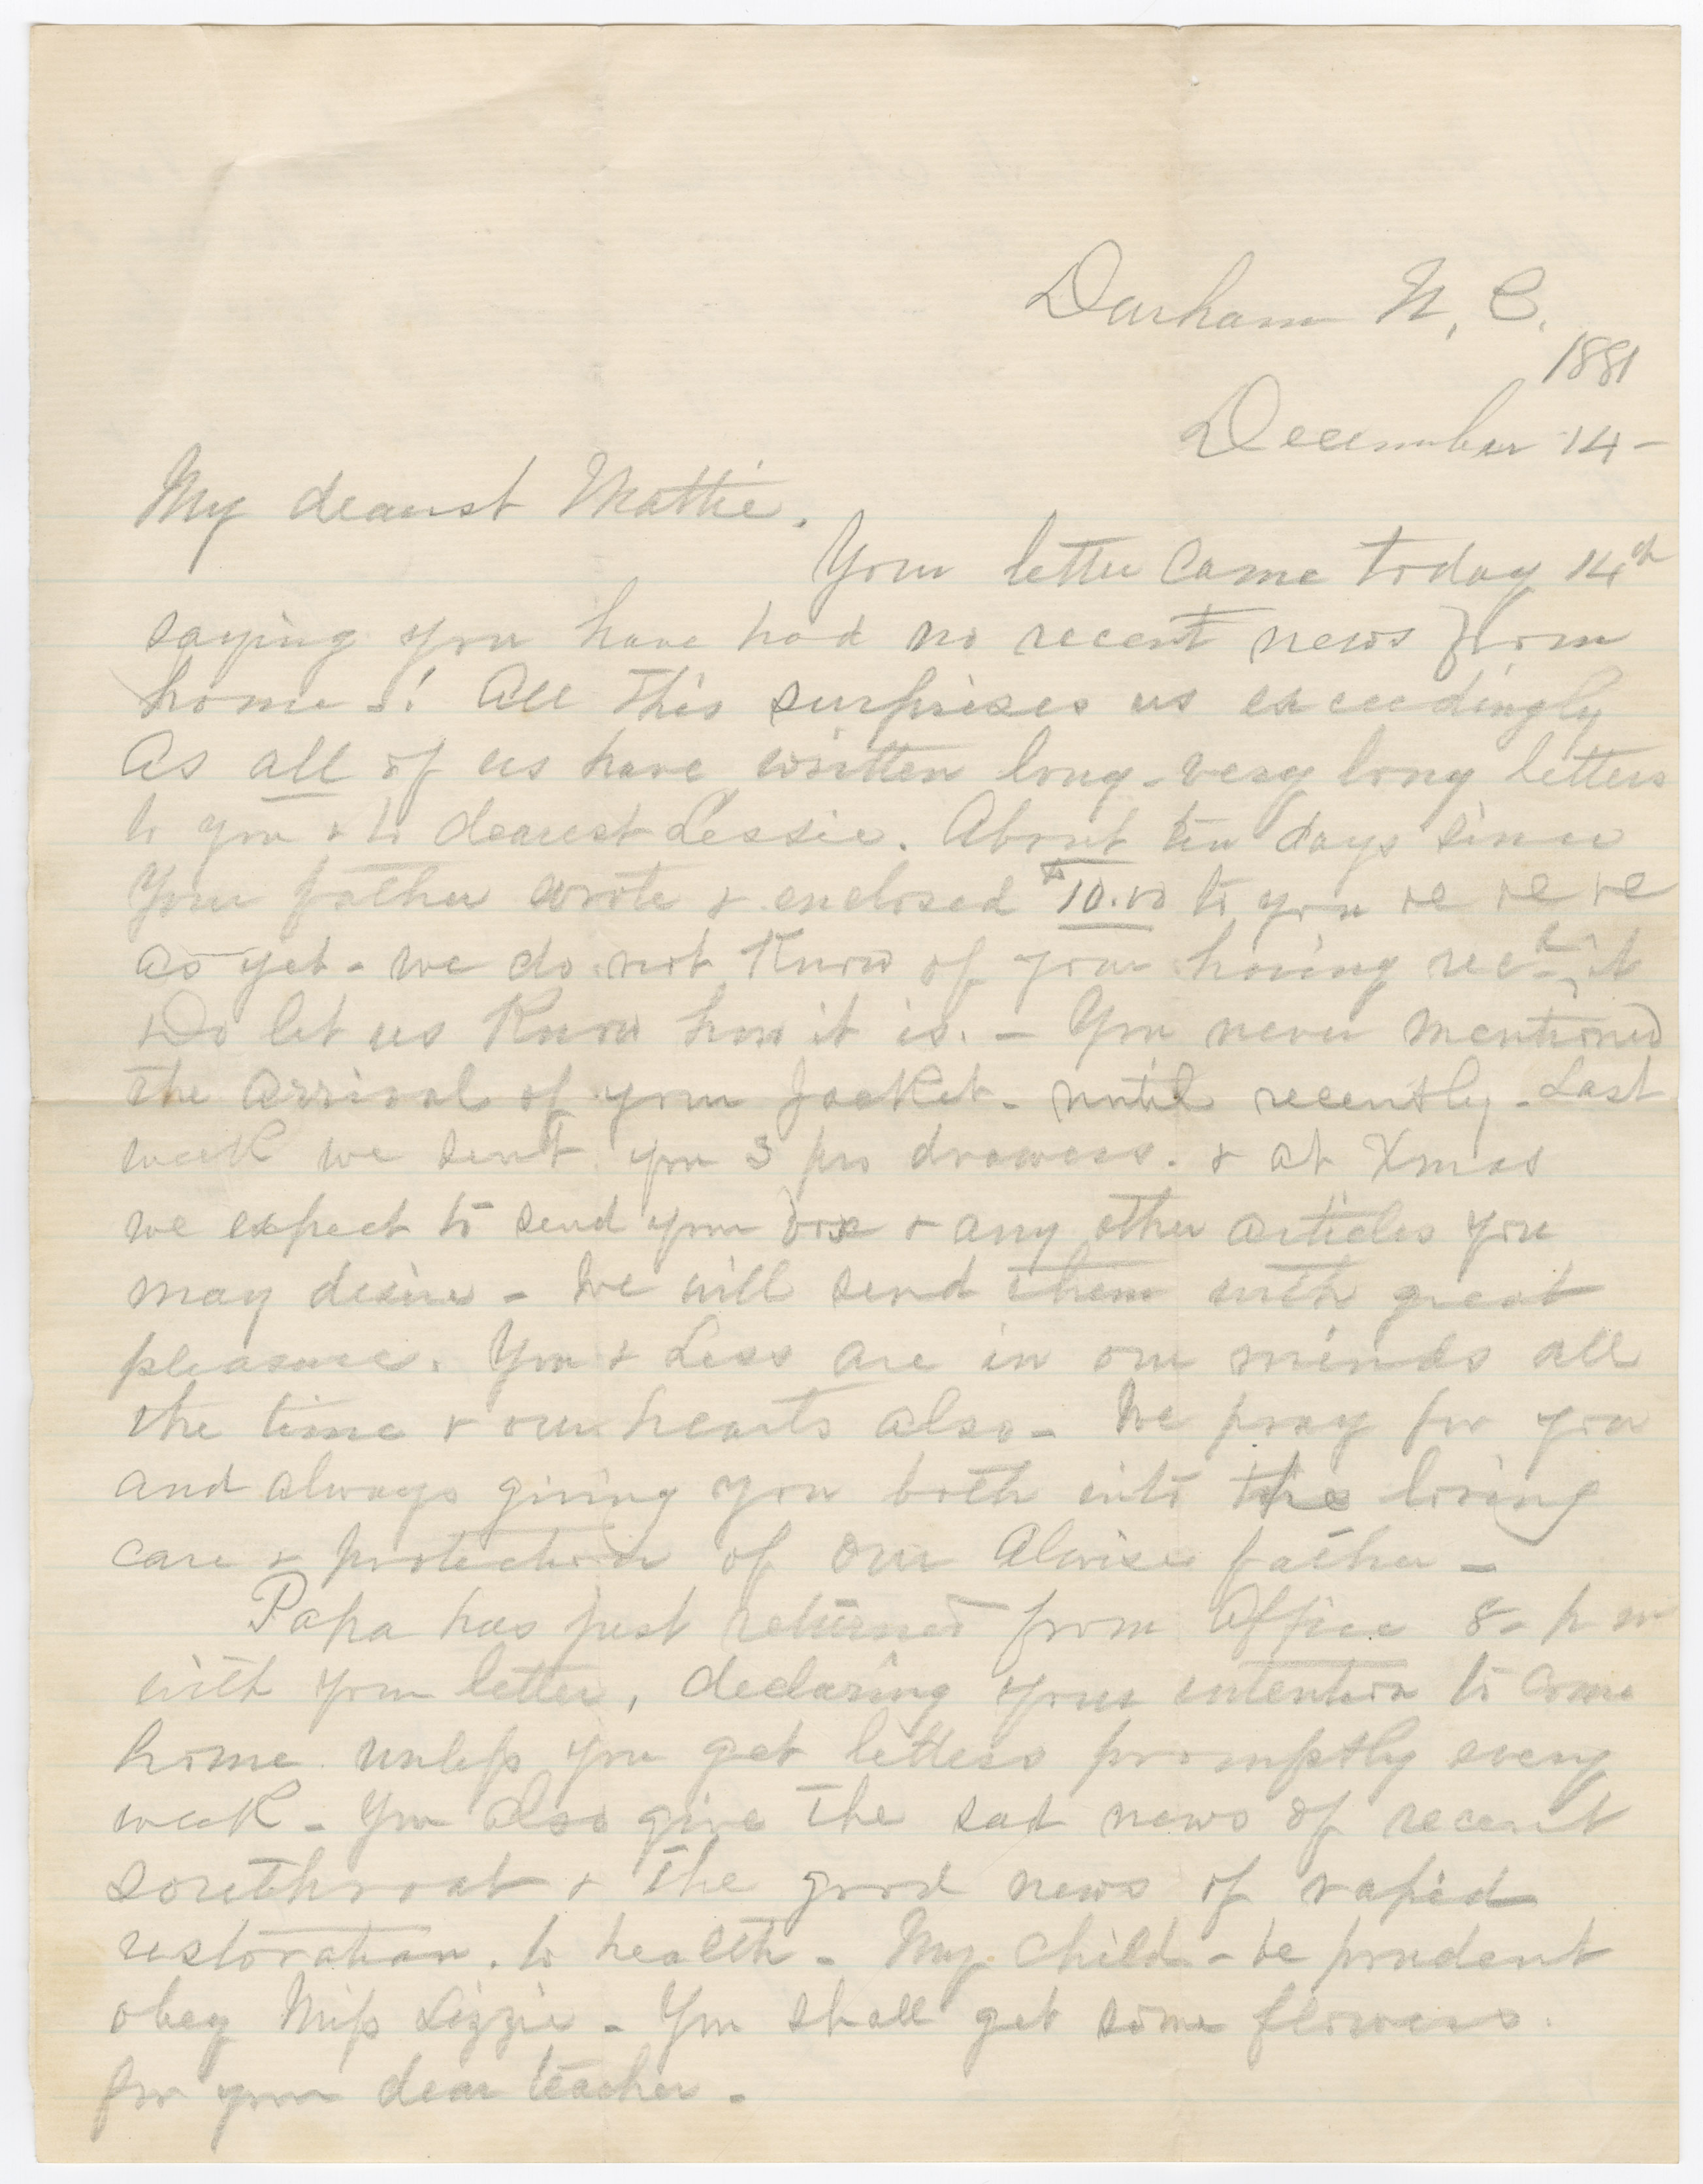 Durham N. C.
1881
December 14 -
My dearest Mattie.
Your letter came today 14th
saying you have had no recent news from
home -! All this surprises us exceedingly
As all of us have written long - very long letters
to you & to dearest Lessie. About ten days since
Your father wrote & enclosed $10.00 to you &c &c &c
as yet - we do not Know of your having recd it
Do let us Know how it is. - You never mentioned
the arrival of your Jacket - until recently - Last
week we sent you 3 prs drawers. & at Xmas
we expect to send your box & any other articles you
may desire - We will send them with great
pleasure. You & Less are in our minds all
the time & our hearts also - We pray for you
and always giving you both into the loving
care & protection of our Alwise father -
Papa has just returned from Office 8 - p m
with your letter, declaring your intention to come
home unless you get letters promptly every
week - You also give the sad news of recent
sorethroat & the good news of rapid
restoration. to health - My child - be prudent
obey Miss Lizzie - You shall get some flowers.
for your dear teacher -